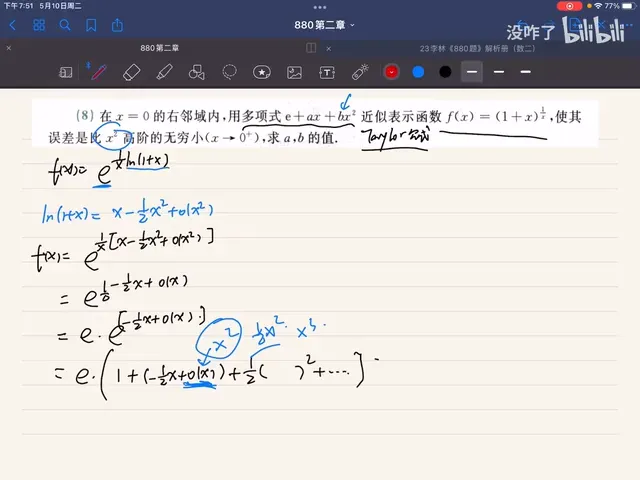 下午7:51 5月10日周二
77%
880第二章
没咋了 bilibili
880第二章
23李林《880题》解析册（数二）
(8) 在 x = 0 的右邻域内，用多项式 e + ax + bx² 近似表示函数 f(x) = (1+x)^{1/x}，使其
误差是比 x² 高阶的无穷小(x → 0⁺)，求 a,b 的值.
Taylor公式
f(x) = e^{1/x ln(1+x)}
ln(1+x) = x - 1/2x² + o(x²)
f(x) = e^{1/x[x - 1/2x² + o(x²)]}
= e^{1 - 1/2x + o(x)}
= e · e^{[-1/2x + o(x)]}
x² 1/8x² x³
= e · (1 + (-1/2x + o(x)) + 1/2( )² + ····]